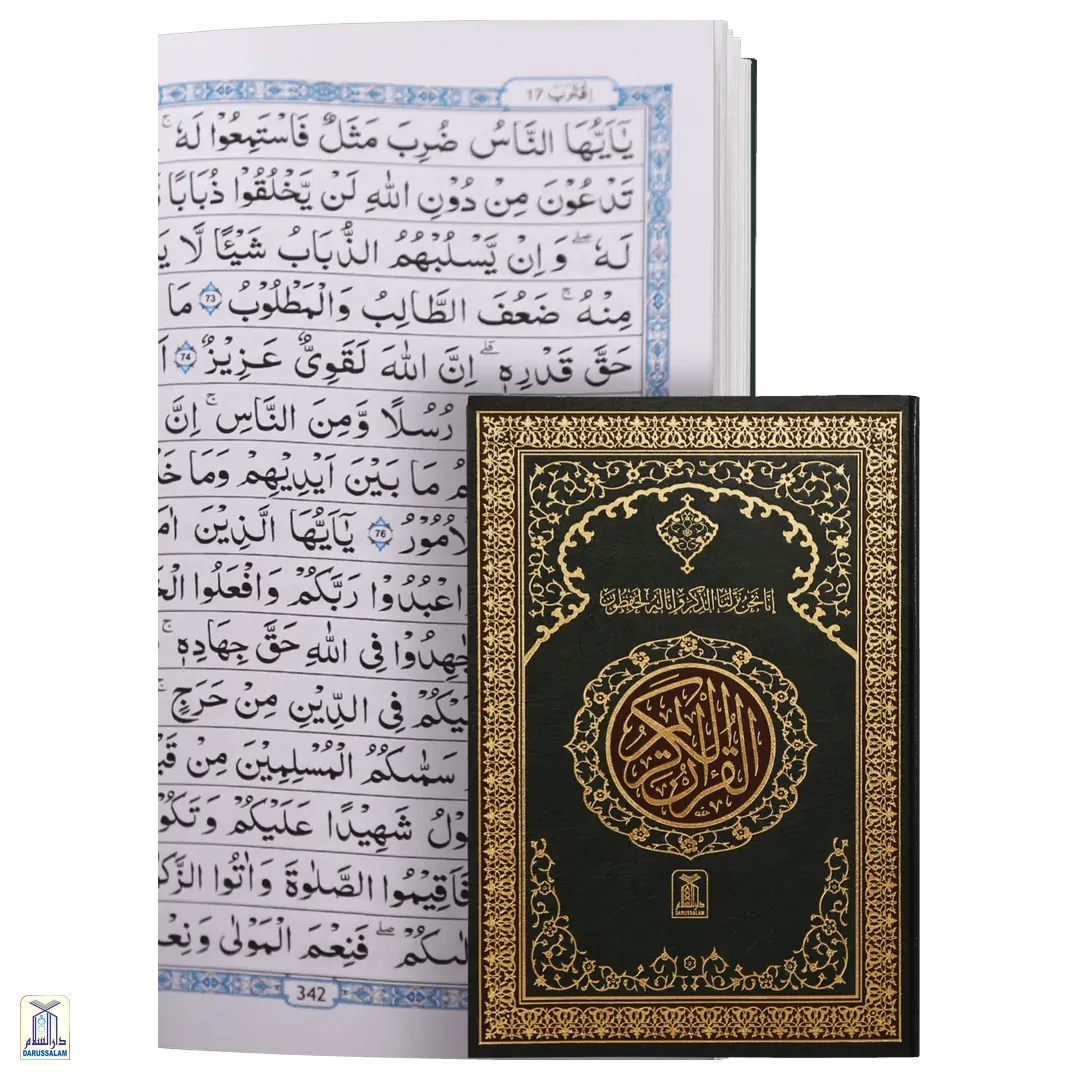 اِقْتَرَبَ 17
يٰۤاَيُّهَا النَّاسُ ضُرِبَ مَثَلٌ فَاسْتَمِعُوْا لَهٗ ۚ
تَدْعُوْنَ مِنْ دُوْنِ اللّٰهِ لَنْ يَّخْلُقُوْا ذُبَابًا
لَهٗ ۖ وَ اِنْ يَّسْلُبْهُمُ الذُّبَابُ شَيْـًٔا لَّا
مِنْهُ ۚ ضَعُفَ الطَّالِبُ وَالْمَطْلُوْبُ 73 مَا
حَقَّ قَدْرِهٖ ۗ اِنَّ اللّٰهَ لَقَوِيٌّ عَزِيْزٌ 74
رُسُلًا وَّمِنَ النَّاسِ ۚ اِنَّ
مَا بَيْنَ اَيْدِيْهِمْ وَمَا
76 يٰۤاَيُّهَا الَّذِيْنَ
اعْبُدُوْا رَبَّكُمْ وَافْعَلُوا
فِى اللّٰهِ حَقَّ جِهَادِهٖ ۚ
فِى الدِّيْنِ مِنْ حَرَجٍ
سَمّٰىكُمُ الْمُسْلِمِيْنَ مِنْ
شَهِيْدًا عَلَيْكُمْ وَ
فَاَقِيْمُوا الصَّلٰوةَ وَاٰتُوا
فَنِعْمَ الْمَوْلٰى وَ
342
اِنَّا نَحْنُ نَزَّلْنَا الذِّكْرَ وَاِنَّا لَهٗ لَحٰفِظُوْنَ
القرآن الكريم
دارالسلام
DARUSSALAM
دارالسلام
DARUSSALAM